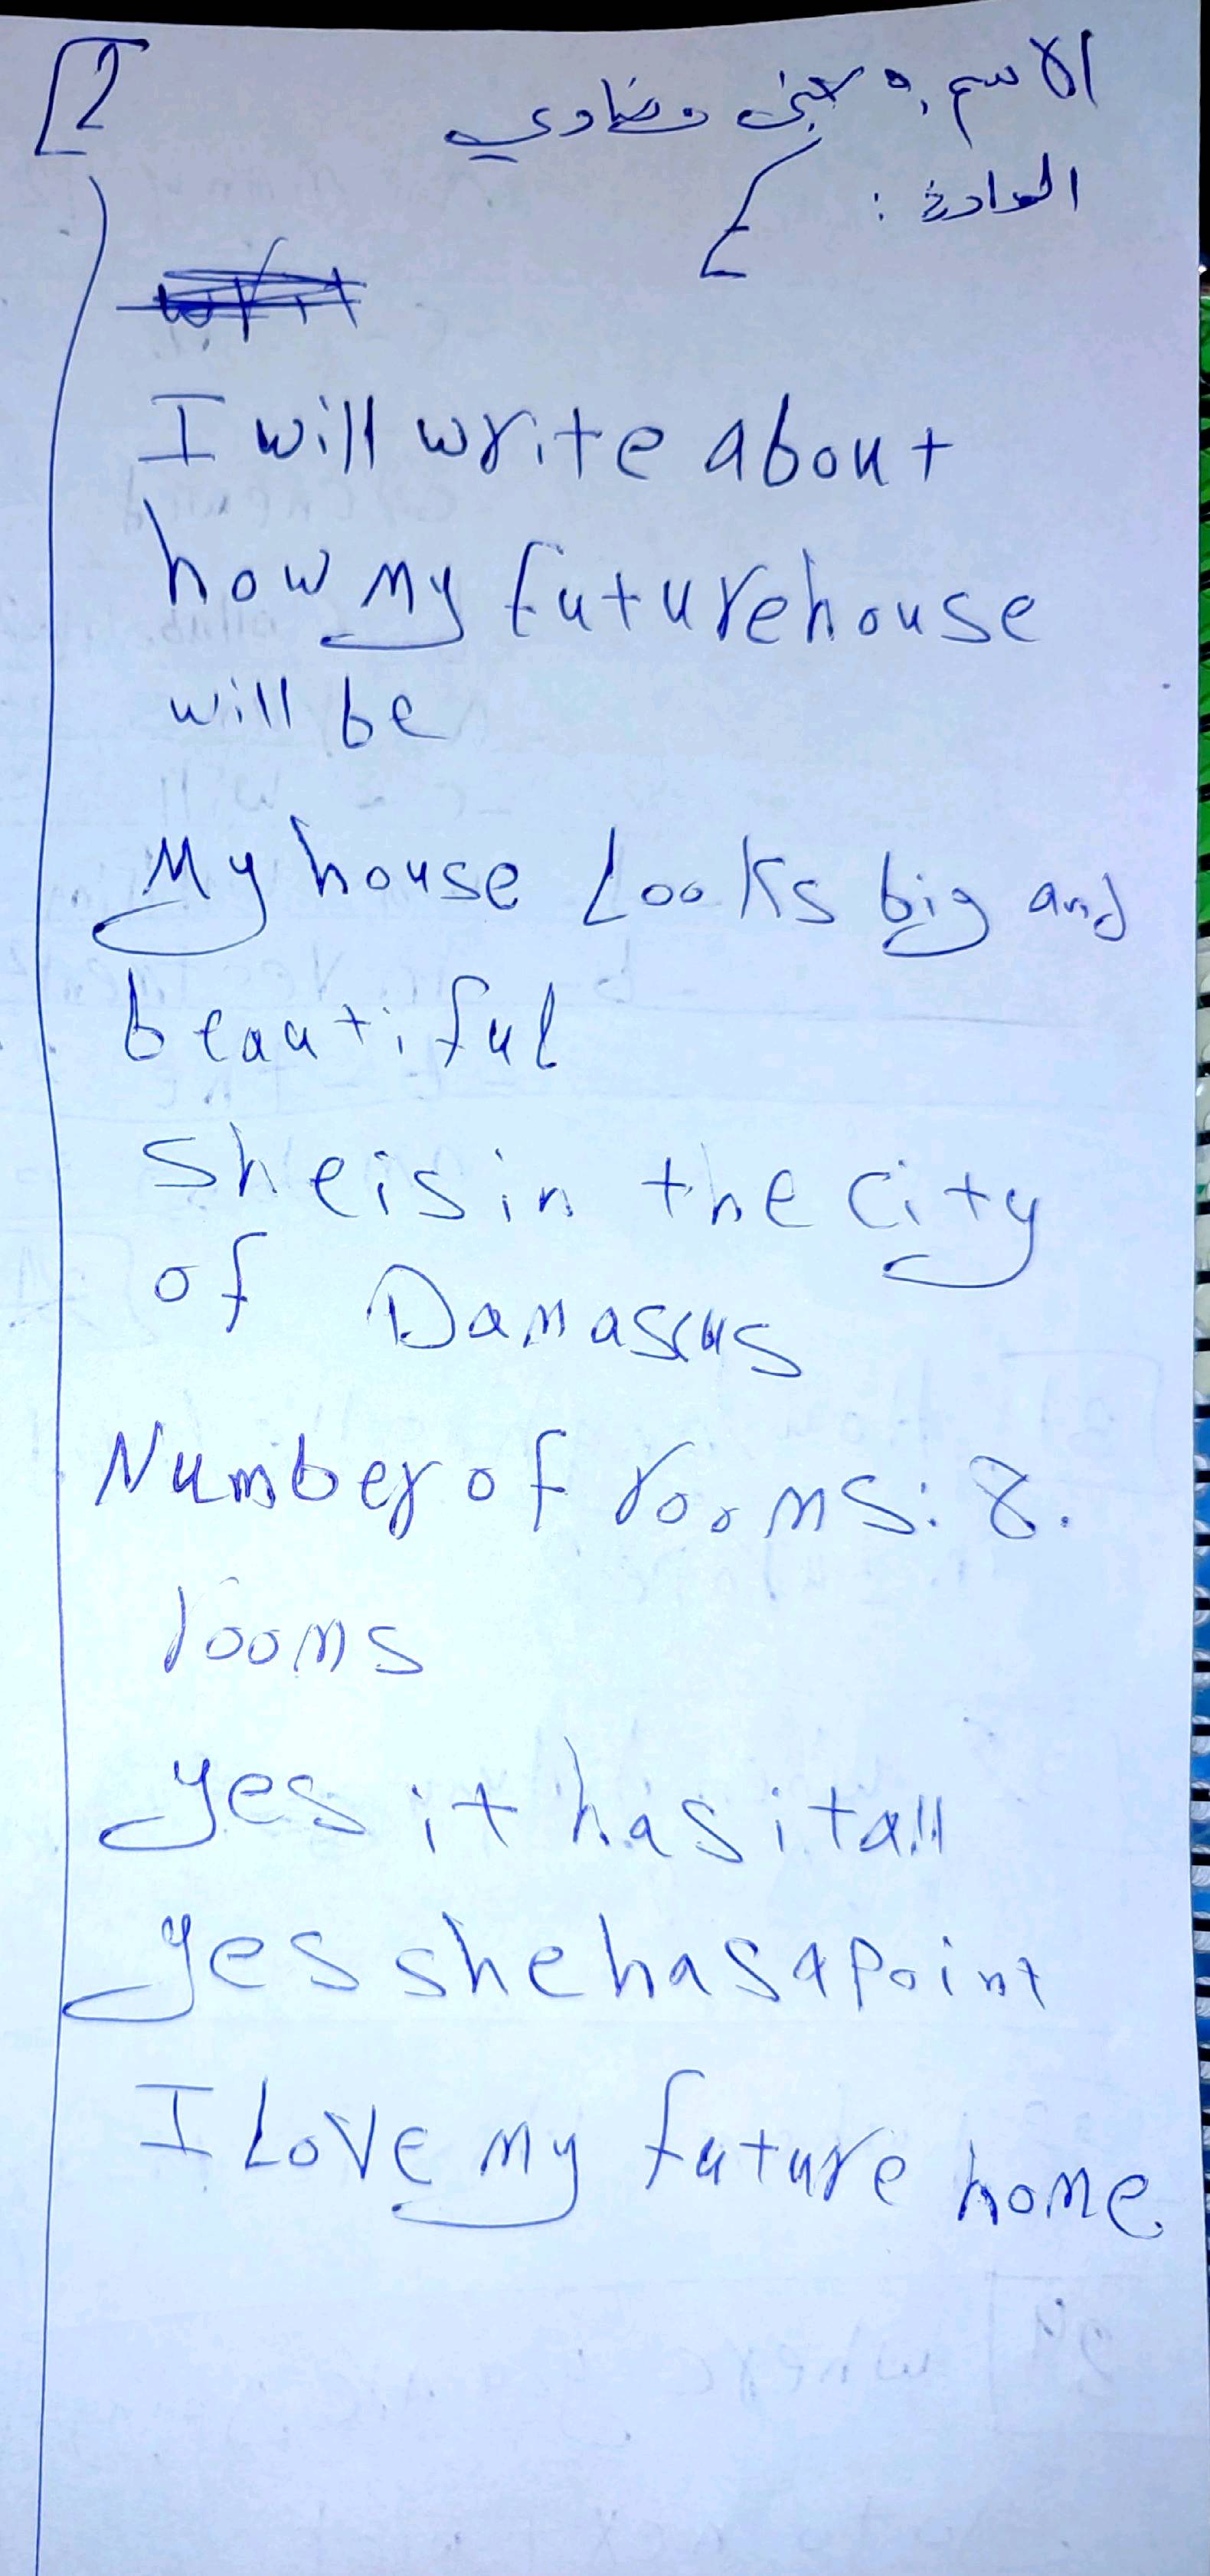 2
الاسم:
المادة: E
I will write about
how my futurehouse
will be
My house Looks big and
beautiful
She is in the city
of Damascus
Number of rooms: 8.
rooms
yes it has it all
yes she has a point
I Love my future home.